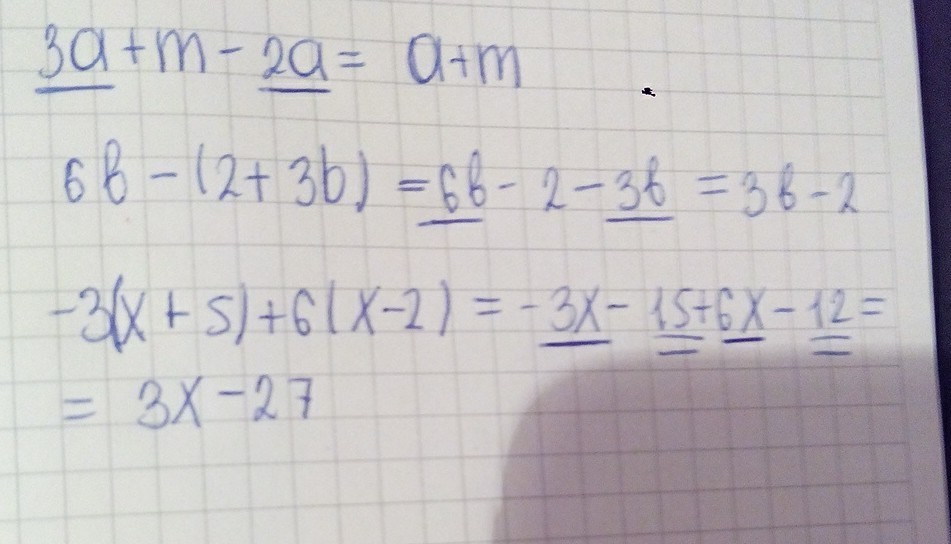 3a + m - 2a = a + m
6b - (2 + 3b) = 6b - 2 - 3b = 3b - 2
-3(x + 5) + 6(x - 2) = -3x - 15 + 6x - 12 =
= 3x - 27